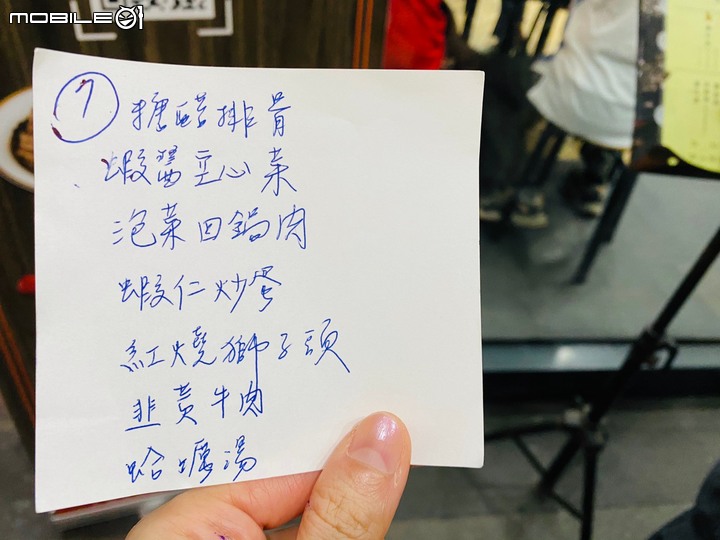 MOBILE01
7
糖醋排骨
蝦醬空心菜
泡菜回鍋肉
蝦仁炒蛋
紅燒獅子頭
韭黃牛肉
蛤蠣湯